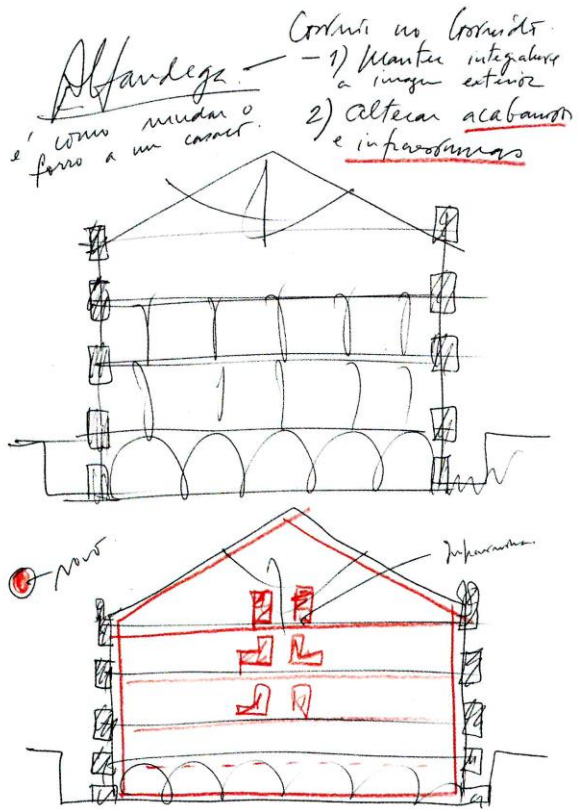 Alfandega. —
é como mudar o
forro a um casaco.
Construir no Construído.
- 1) Manter integralmente
a imagem exterior
2) alterar acabamentos
e infraestruturas
novo
Infraestruturas